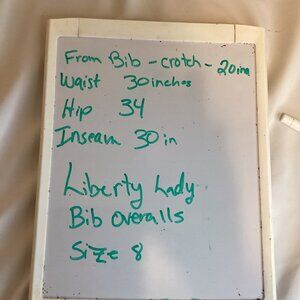 From Bib - crotch - 20 ins
Waist 30 inches
Hip 34
Inseam 30 in
Liberty Lady
Bib Overalls
Size 8